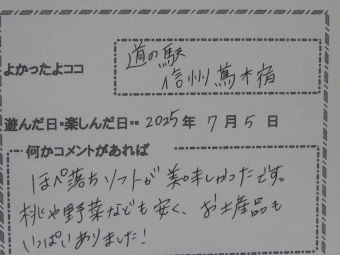 よかったよココ
道の駅
信州蔦木宿
遊んだ日・楽しんだ日・・2025年7月5日
何かコメントがあれば
ほぺ落ちソフトが美味しかったです。
桃や野菜なども安く、お土産品も
いっぱいありました!